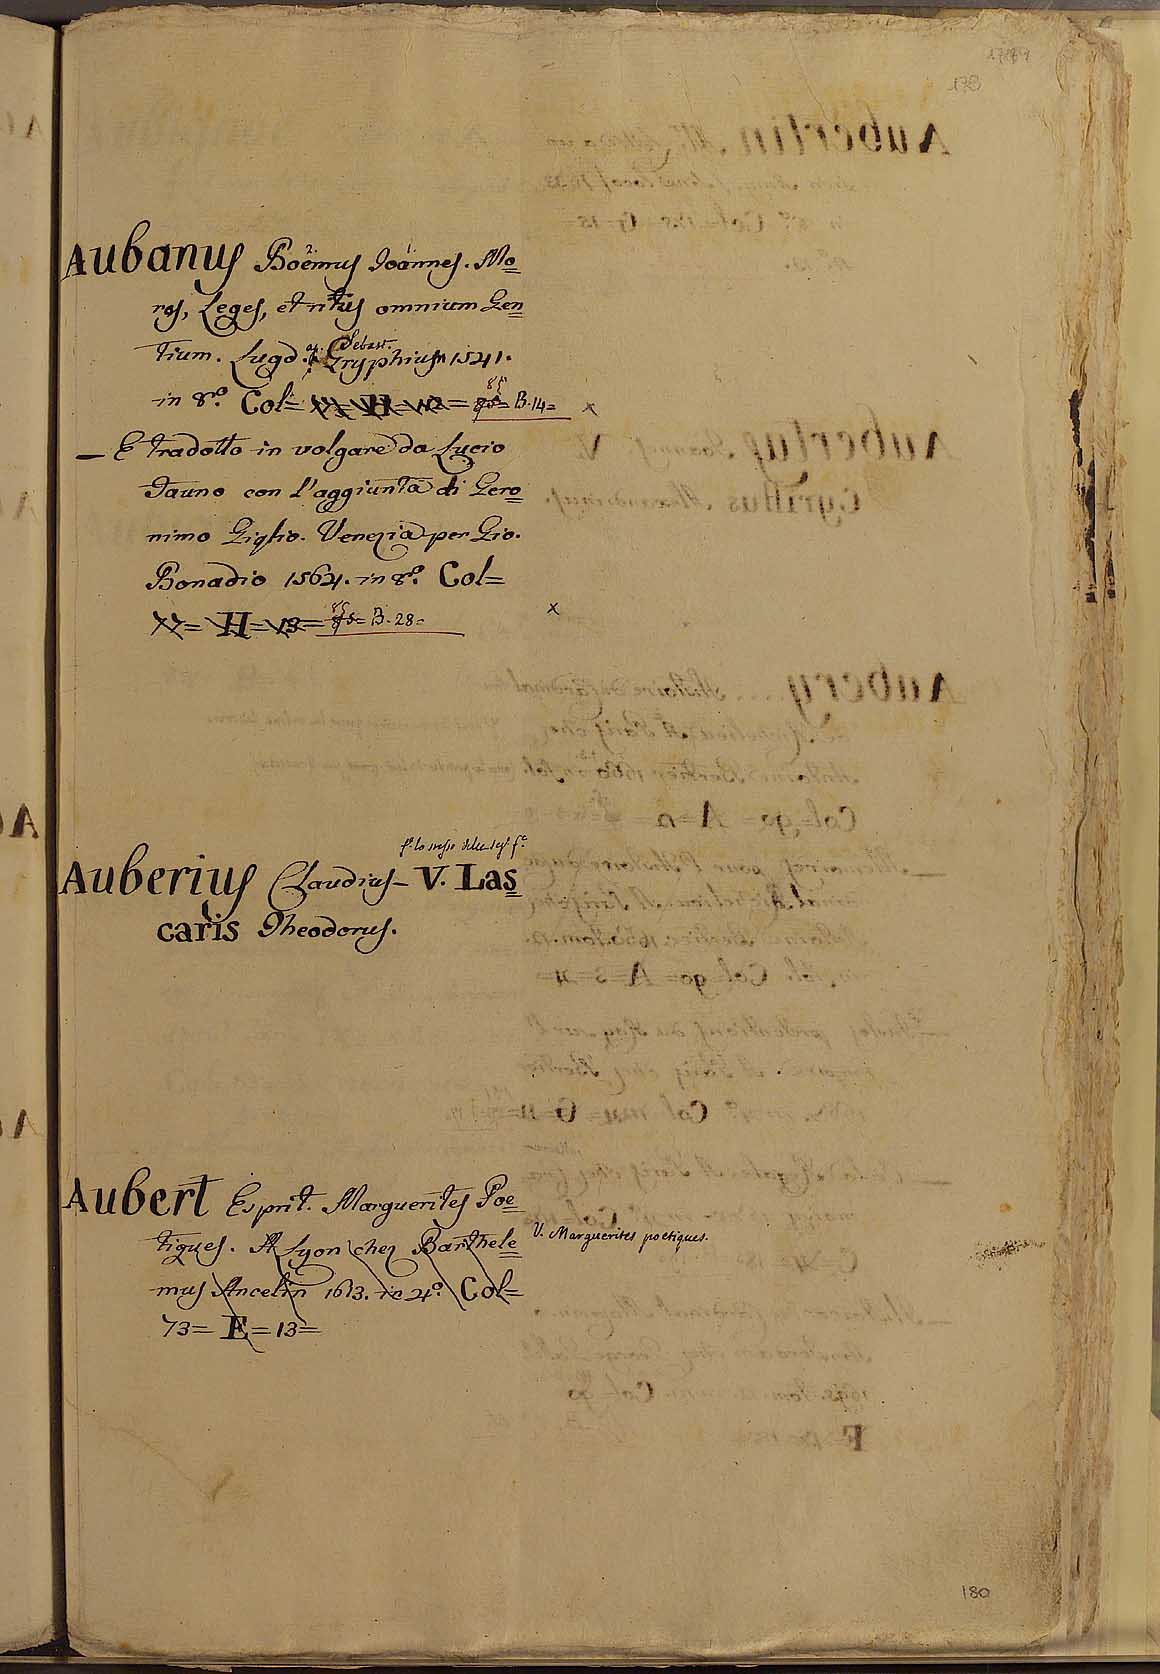 178
Aubanus Boëmus Ioannes. Mo=
res, Leges, et ritus omnium Gen=
tium. Lugd. ap. Sebast. Gryphium 1541.
in 8º. Col= = H = 12 = 85 = B. 14= x
— E tradotto in volgare da Lucio
Fauno con l'aggiunta di Gero=
nimo Giglio. Venezia per Gio.
Bonadio 1564. in 8º. Col=
= H = 13 = 85 = B. 28= x
Auberius Claudius – V. Las=
caris Theodorus.
Aubert Esprit. Marguerites Poe=
tiques. A Lyon chez Barthele=
mus Ancelin 1613. in 4º. Col=
73= E = 13=
V. Marguerites poetiques.
180